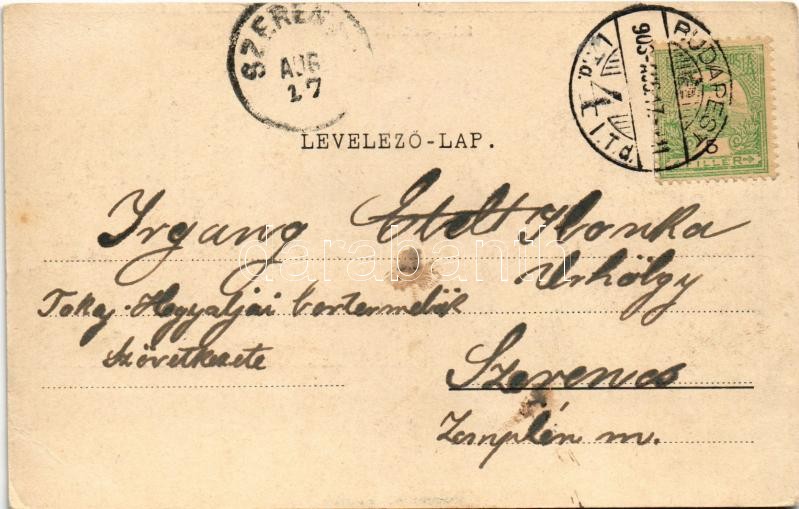 SZEREN
AUG
17
BUDAPEST
LEVELEZŐ-LAP.
FILLER
Irgang Etelt Ilonka
Úrhölgy
Tokaj-Hegyaljai bortermelők
Szövetkezete
Szerencs
Zemplén m.
darabanth.com